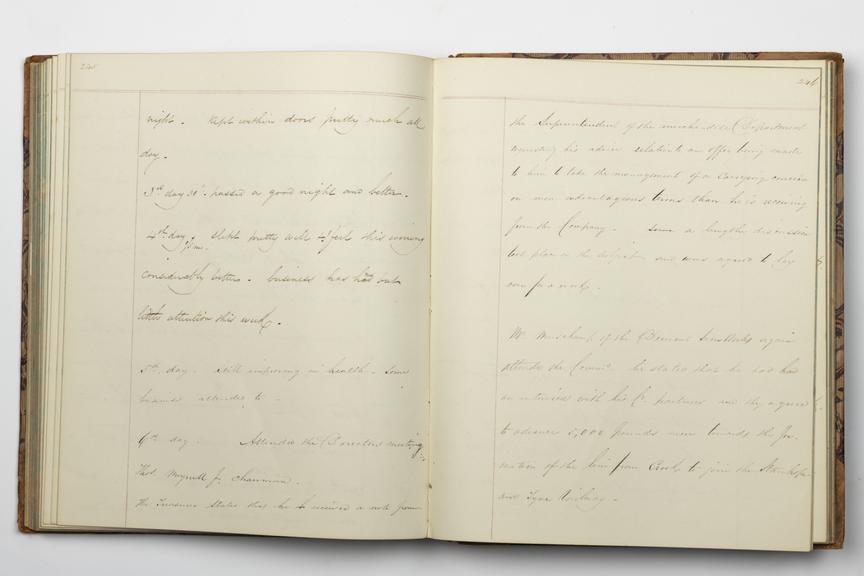 245
night. Kept within doors pretty much all
day.
3rd day 30th. passed a good night and better.
4th day. slept pretty well & feel this morning
considerably better. business has had but
little attention this week.
5th day. still improving in health. some
business attended to.
6th day. Attended the Directors meeting.
Thos. Meynell Jr. Chairman.
The Treasurer States that he received a note from
246
the Superintendent of the merchandise Department
his advice relative to an offer being made
to him to take the management of a Carrying concern
on more advantageous terms than he is receiving
from the Company. Some a lengthy discussion
took place on the subject and was agreed to lay
over for a week.
Mr. of the Iron Works again
attended the he stated that he had had
an interview with his Co. partners and they agreed
to advance 5,000 pounds more towards the for
mation of the line from Crook to join the Stanhope
and Tyne Railway.